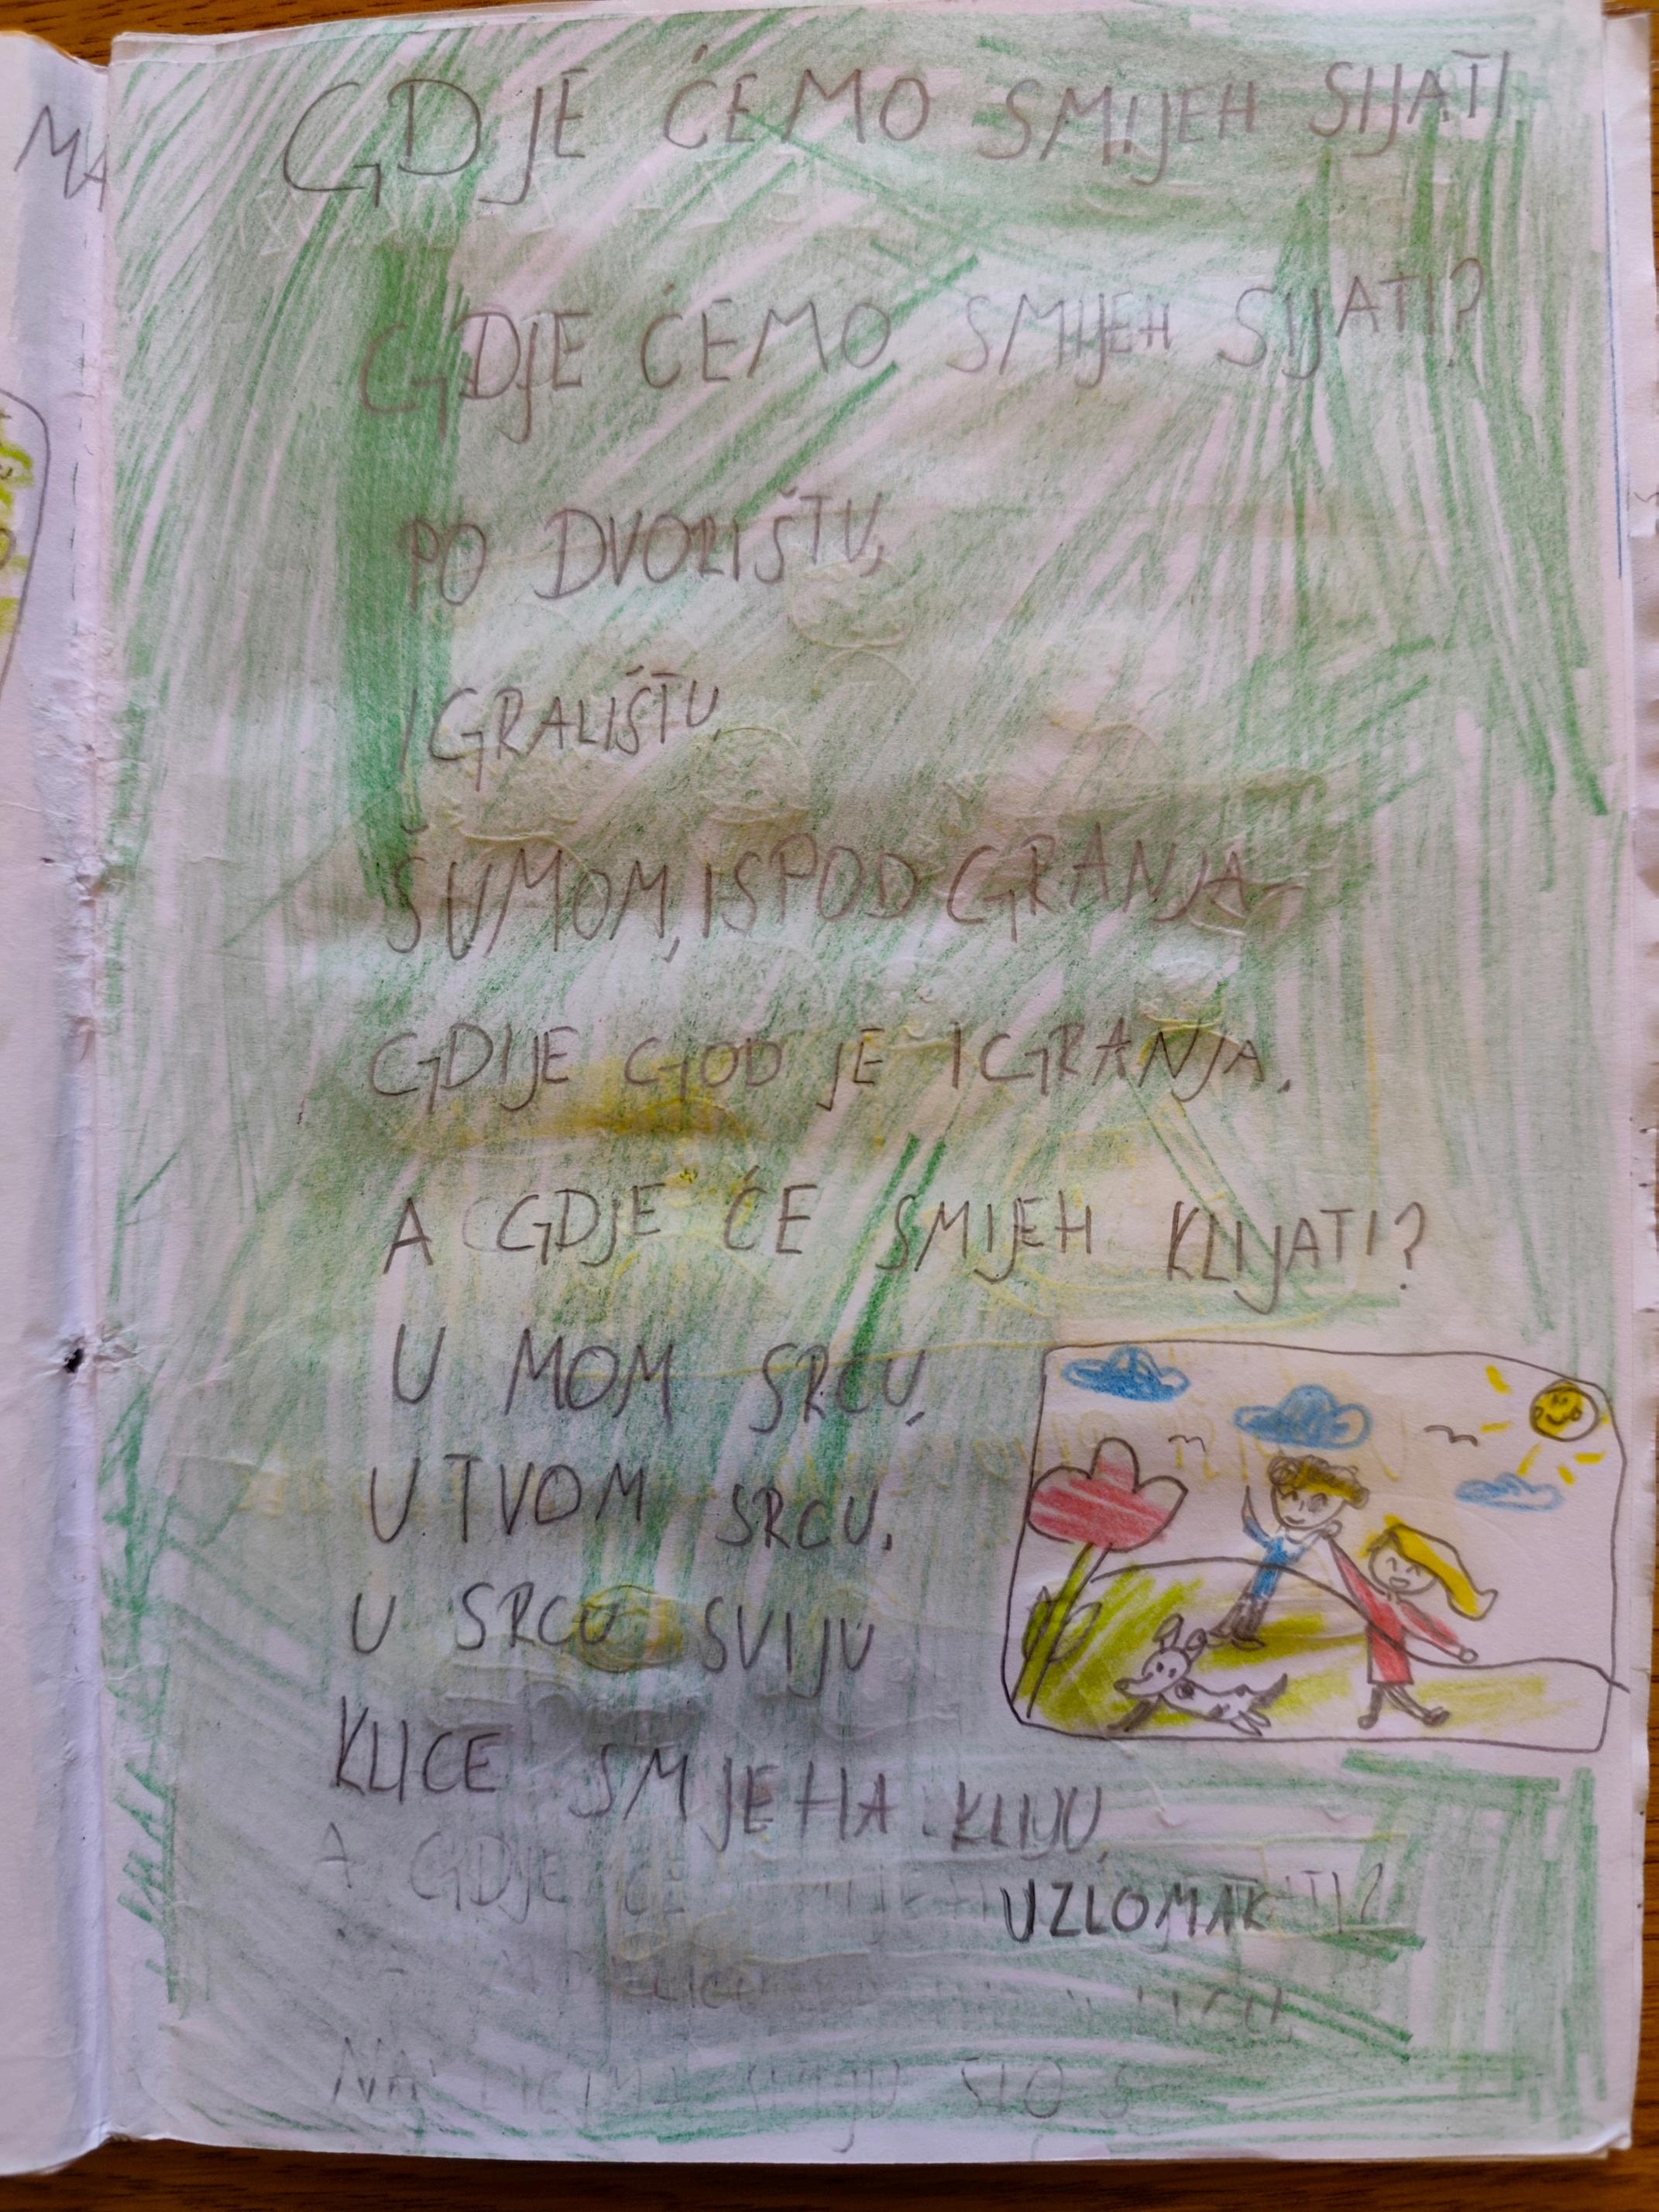 MA
GDJE ĆEMO SMIJEH SIJATI
GDJE ĆEMO SMIJEH SIJATI?
PO DVORIŠTU,
IGRALIŠTU,
ŠUMOM, ISPOD GRANJA
GDIJE GOD JE IGRANJA.
A GDJE ĆE SMIJEH KLIJATI?
U MOM SRCU,
U TVOM SRCU.
U SRCU SVIJU
KLICE SMJEHA KLIJU,
A GDJE ĆE
UZLOMAK